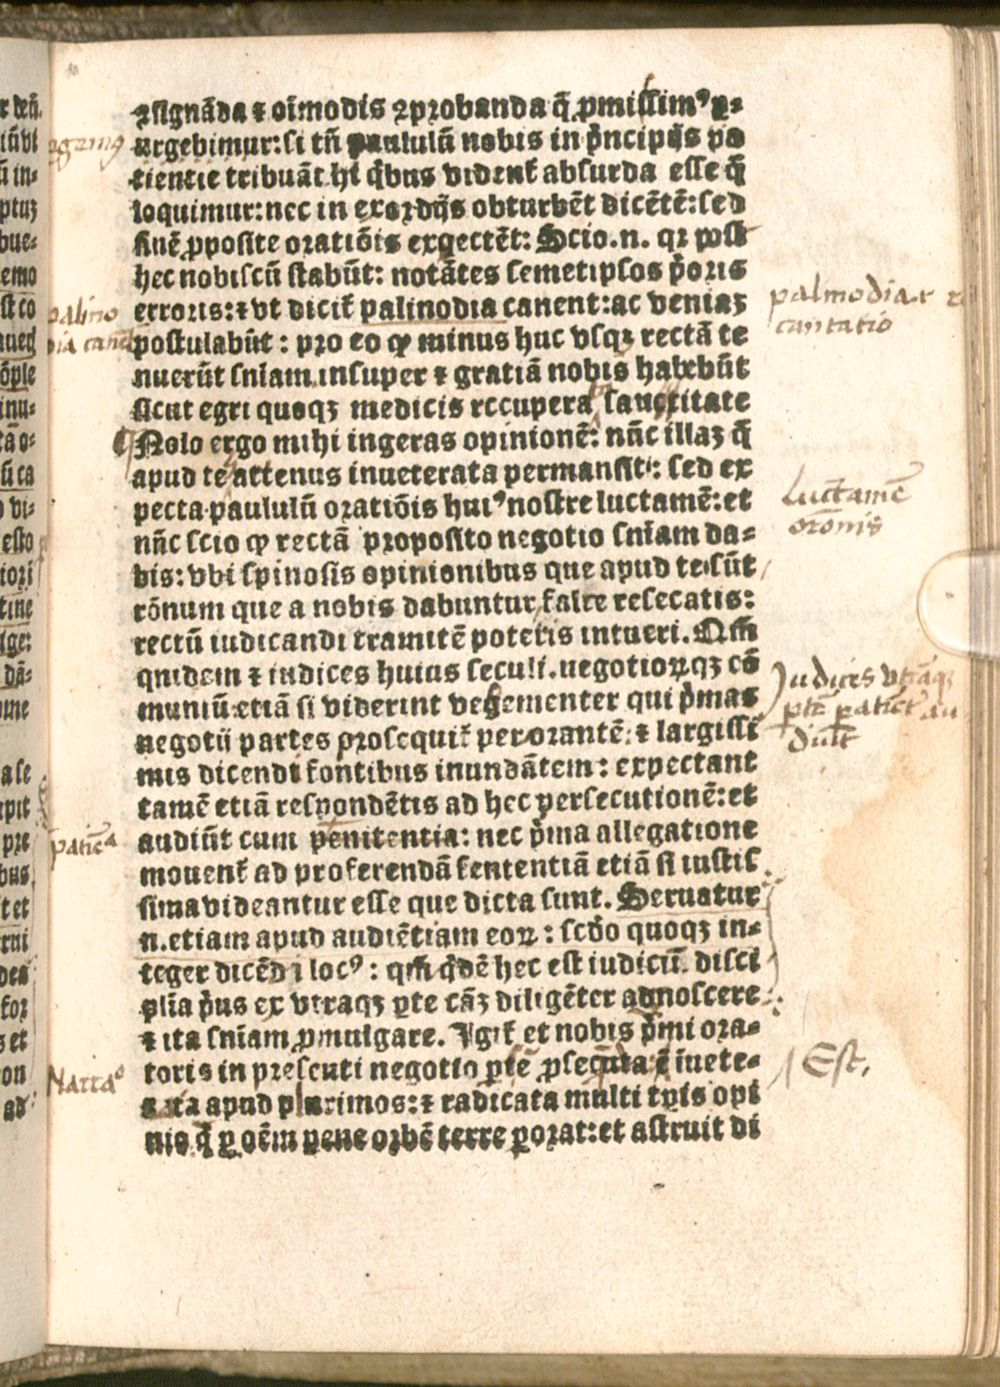 ꝯsignãda ⁊ oĩmodis ꝯprobanda q̃ ꝓmissimꝰ ꝑ-
urgebimur: si tñ paululũ nobis in pͥncipijs pa
tientie tribuãt hi qͥbus vident̃ absurda esse q̃
loquimur: nec in exordijs obturbẽt dicẽtẽ: sed
sinẽ ꝓposite oratiõis exꝑectẽt: Scio .n. qꝛ post
hec nobiscũ stabũt: notãtes semetipsos pͥoris
erroris: ⁊ vt dicit̃ palinodia canent: ac veniaꝫ
postulabũt: pro eo ꝙ minus huc vsqꝫ rectã te
nuerũt sñiam. insuper ⁊ gratiã nobis habebũt
sicut egri quoqꝫ medicis recupera sanctitate
Nolo ergo mihi ingeras opinionẽ: nũc illaꝫ q̃
apud te attenus inueterata permansit: sed ex
pecta paululũ oratiõis huiꝰ nostre luctamẽ: et
nũc scio ꝙ rectã proposito negotio sñiam da-
bis: vbi spinosis opinionibus que apud te sũt
rõnum que a nobis dabuntur falce resecatis:
rectũ iudicandi tramitẽ poteris intueri. Qm̃
quidem ⁊ iudices huius seculi. negotioꝝqꝫ cõ
muniũ etiã si viderint vehementer qui pͥmas
negotii partes prosequit̃ perorantẽ: ⁊ largissi
mis dicendi fontibus inundãtem: expectant
tamẽ etiã respondẽtis ad hec persecutionẽ: et
audiũt cum penitentia: nec pͥma allegatione
mouent̃ ad proferendã sententiã etiã si iustis
sima videantur esse que dicta sunt. Seruatur
.n. etiam apud audiẽtiam eoꝝ: scdo quoqꝫ in-
teger dicẽdi locꝰ: qm̃ qͥdẽ hec est iudicũ. disci
plia pͥus ex vtraqꝫ ꝑte cãꝫ diligẽter agnoscere
⁊ ita sñiam ꝓmulgare. Igit̃ et nobis pͥmi ora-
toris in presenti negotio ꝑtẽ ꝓsequta ẽ iuete-
rata apud plurimos: ⁊ radicata multi tpis opi
nio q̃ ꝑ oẽm pene orbẽ terre ꝑorat: et astruit di
palino
dia canẽt
pati​ẽa
Narraᵒ
palinodia r
cantatio
Luctamẽ
orõnis
Judices vtraqꝫ
ꝑtẽ ꝑatiẽt au
diũt
Est,